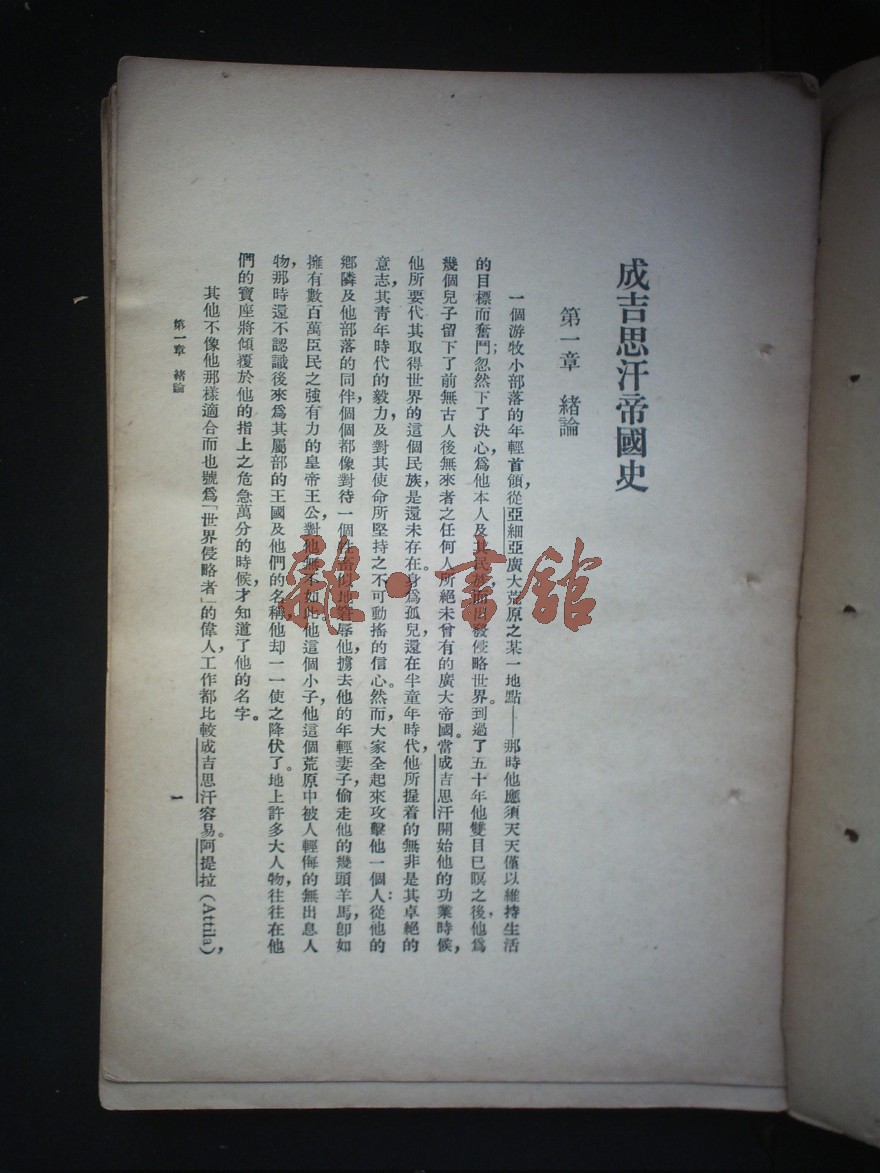 成吉思汗帝國史
第一章 緒論
一個游牧小部落的年輕首領,從亞細亞廣大荒原之某一地點——那時他應須天天僅以維持生活
的目標而奮鬥;忽然下了決心,爲他本人及其民族,而出發侵略世界。到過了五十年他雙目已暝之後,他爲
幾個兒子留下了前無古人後無來者之任何人所絕未曾有的廣大帝國。當成吉思汗開始他的功業時候,
他所要代其取得世界的這個民族,是還未存在。身爲孤兒,還在半童年時代,他所握着的無非是其卓絕的
意志,其青年時代的毅力,及對其使命所堅持之不可動搖的信心。然而,大家全起來攻擊他一個人:從他的
鄉隣及他部落的同伴,個個都像對待一個牲畜似地窘辱他,擄去他的年輕妻子,偷走他的幾頭羊馬,卽如
擁有數百萬臣民之強有力的皇帝王公,對他無不如此他這個小子,他這個荒原中被人輕侮的無出息人
物,那時還不認識後來爲其屬部的王國及他們的名稱,他却一一使之降伏了。地上許多大人物,往往在他
們的寶座將傾覆於他的指上之危急萬分的時候,才知道了他的名字。
其他不像他那樣適合而也號爲「世界侵略者」的偉人,工作都比較成吉思汗容易。阿提拉(Attila),
第一章 緒論
一
雜·書館